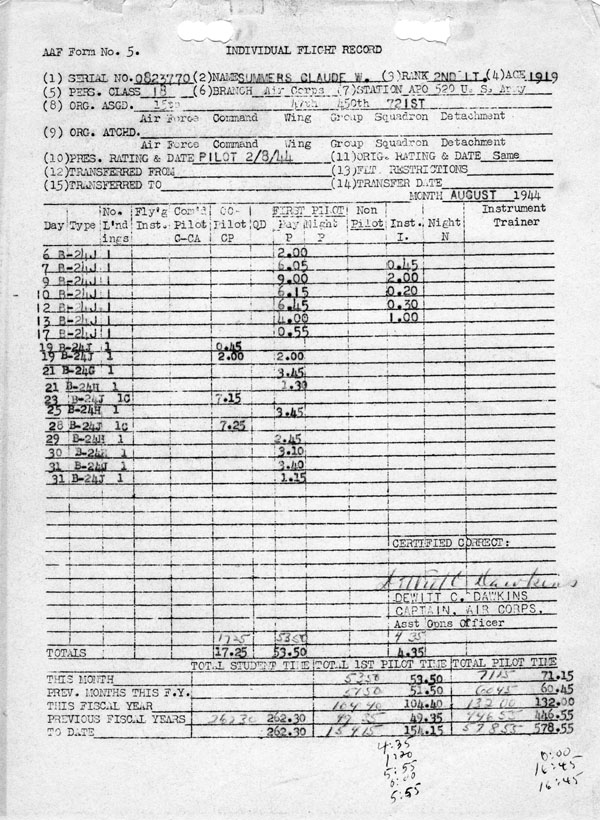 AAF Form No. 5. INDIVIDUAL FLIGHT RECORD
(1) SERIAL NO. 0823770 (2) NAME SUMMERS CLAUDE W. (3) RANK 2ND LT. (4) AGE 1919
(5) PERS. CLASS 18 (6) BRANCH Air Corps (7) STATION APO 520 U. S. Army
(8) ORG. ASGD. 15th 47th 450th 721ST
Air Force Command Wing Group Squadron Detachment
(9) ORG. ATCHD.
Air Force Command Wing Group Squadron Detachment
(10) PRES. RATING & DATE PILOT 2/8/44 (11) ORIG. RATING & DATE Same
(12) TRANSFERRED FROM (13) FLT. RESTRICTIONS
(15) TRANSFERRED TO (14) TRANSFER DATE
MONTH AUGUST 1944
No. Fly'g Com'd CO- FIRST PILOT Non Instrument
Day Type L'nd Inst. Pilot Pilot QD Day Night Pilot Inst. Night Trainer
ings C-CA CP P P I. N
6 B-24J 1 2.00
7 B-24J 1 6.05 0.45
9 B-24J 1 9.00 2.00
10 B-24J 1 6.15 0.20
12 B-24J 1 6.45 0.30
13 B-24J 1 4.00 1.00
17 B-24J 1 0.55
19 B-24J 1 0.45
19 B-24J 1 2.00 2.00
21 B-24G 1 3.45
21 B-24H 1 1.30
23 B-24J 1C 7.15
25 B-24H 1 3.45
28 B-24J 1C 7.25
29 B-24H 1 2.45
30 1 3.10
31 1 3.40
31 B-24J 1 1.15
CERTIFIED CORRECT:
Dewitt C. Dawkins
DEWITT C. DAWKINS
CAPTAIN, AIR CORPS,
Asst Opns Officer
1725 5350 4 35
TOTALS 17.25 53.50 4.35
TOTAL STUDENT TIME TOTAL 1ST PILOT TIME TOTAL PILOT TIME
THIS MONTH 5350 53.50 7115 71.15
PREV. MONTHS THIS F.Y. 5150 51.50 6045 60.45
THIS FISCAL YEAR 104 40 104.40 132 00 132.00
PREVIOUS FISCAL YEARS 262 30 262.30 49 35 49.35 446 55 446.55
TO DATE 262.30 154 15 154.15 578 55 578.55
4:35
1:20
5:55
0:00
5:55
0:00
16:45
16:45